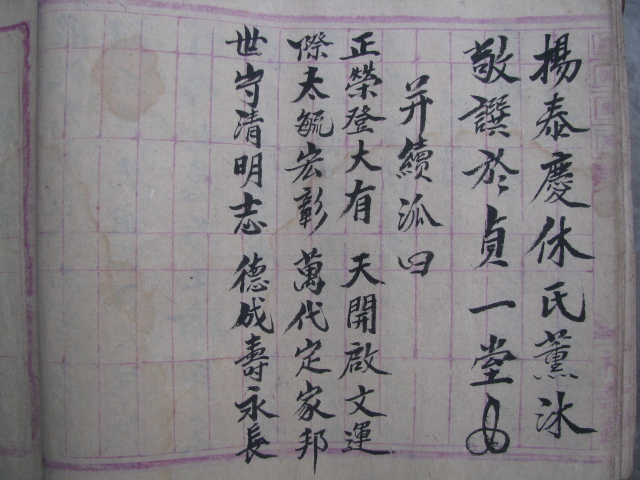 揚泰慶休氏薰沐
敬譔於貞一堂
并續派曰
正榮登大有 天開啟文運
際太毓宏彰 萬代定家邦
世守清明志 德成壽永長